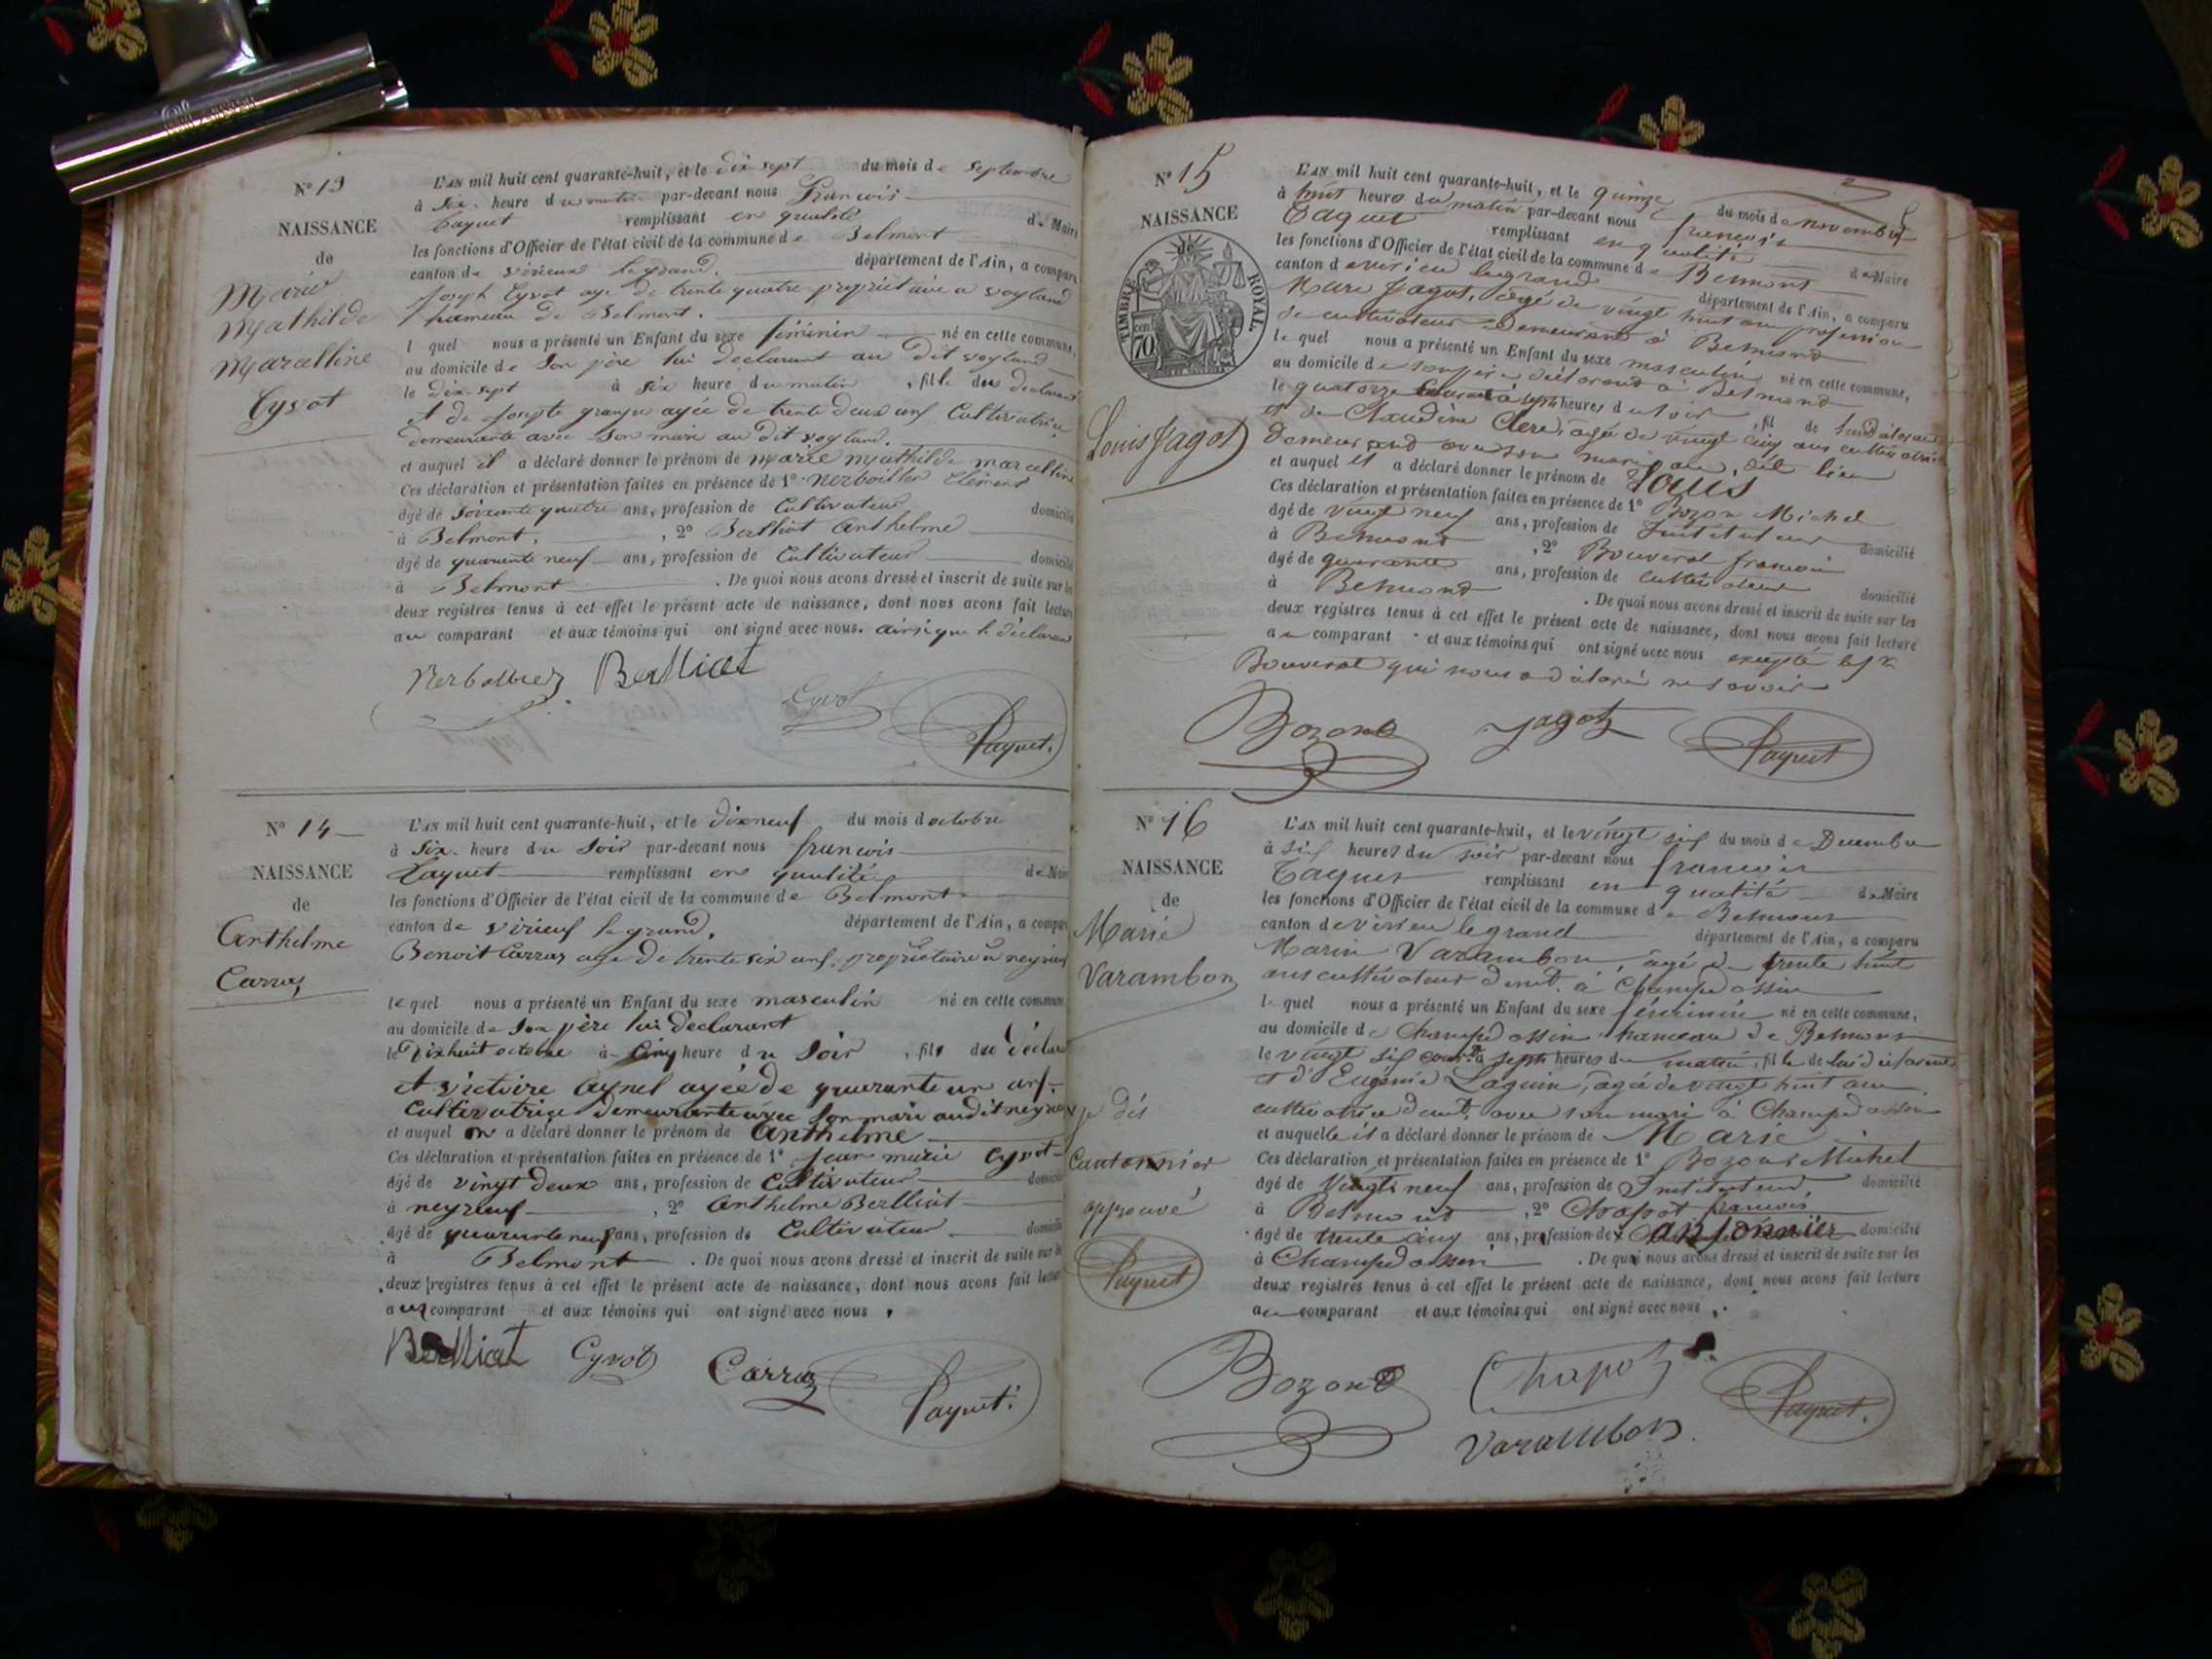 N° 13
NAISSANCE
de
Marie
Mathilde
Marcelline
Cyvot
L'AN mil huit cent quarante-huit, et le dix sept du mois de septembre
à six heure du matin par-devant nous François
Paquet remplissant en qualité de Maire
les fonctions d'Officier de l'état civil de la commune de Belmont
canton de virieux le grand. département de l'Ain, a comparu
Joseph Cyvot age de trente quatre propriétaire a voyland
hameau de Belmont.
l quel nous a présenté un Enfant du sexe féminin né en cette commune,
au domicile de son père lui déclarant au dit voyland
le dix-sept à six heure du matin, fille du déclarant
et de agée de trente deux ans cultivatrice
demeurante avec son mari au dit voyland.
et auquel il a déclaré donner le prénom de marie mathilde marcelline
Ces déclaration et présentation faites en présence de 1° Clément
âgé de soixante quatre ans, profession de Cultivateur domicilié
à Belmont, 2° Berlliat anthelme
âgé de quarante neuf ans, profession de Cultivateur domicilié
à Belmont. De quoi nous avons dressé et inscrit de suite sur les
deux registres tenus à cet effet le présent acte de naissance, dont nous avons fait lecture
au comparant et aux témoins qui ont signé avec nous. ainsi que le déclarant
Berlliat
Cyvot
Paquet.
N° 14
NAISSANCE
de
Anthelme
Carraz
L'AN mil huit cent quarante-huit, et le dixneuf du mois d octobre
à six heure du soir par-devant nous françois
Paquet remplissant en qualité de Maire
les fonctions d'Officier de l'état civil de la commune de Belmont
canton de virieux le grand, département de l'Ain, a comparu
Benoit Carraz age de trente six ans, propriétaire a neyrieux
lequel nous a présenté un Enfant du sexe masculin né en cette commune
au domicile de son père lui déclarant
le dixhuit octobre à cinq heure du soir, fils du déclarant
et victoire aynel agée de quarante un ans
cultivatrice demeurante avec son mari audit neyrieux
et auquel on a déclaré donner le prénom de anthelme
Ces déclaration et présentation faites en présence de 1° jean marie Cyvot
âgé de vingt deux ans, profession de Cultivateur domicilié
à neyrieux, 2° anthelme Berlliat
âgé de quarante neuf ans, profession de Cultivateur domicilié
à Belmont. De quoi nous avons dressé et inscrit de suite sur les
deux registres tenus à cet effet le présent acte de naissance, dont nous avons fait lecture
aux comparant et aux témoins qui ont signé avec nous.
Berlliat Cyvot Carraz
Paquet.
N° 15
NAISSANCE
de
TIMBRE ROYAL
70 cen
Louis Jagot
L'AN mil huit cent quarante-huit, et le quinze du mois de novembre
à huit heures du matin par-devant nous françois
Paquet remplissant en qualité de Maire
les fonctions d'Officier de l'état civil de la commune de Belmont
canton de virieu le grand département de l'Ain, a comparu
Marc Jagot, âgé de vingt huit an profession
de cultivateur demeurant à Belmond
lequel nous a présenté un Enfant du sexe masculin né en cette commune,
au domicile de son père déclarant à Belmond
le quatorze courant à sept heures du soir, fil de lui déclarant
et de Claudine Clere, agée de vingt cinq ans cultivatrice
demeurand avec son mari au dit lieu
et auquel il a déclaré donner le prénom de Louis
Ces déclaration et présentation faites en présence de 1° Bozon Michel
âgé de vingt neuf ans, profession de Instituteur domicilié
à Belmond, 2° Bouverat françois
âgé de quarante ans, profession de cultivateur domicilié
à Belmond. De quoi nous avons dressé et inscrit de suite sur les
deux registres tenus à cet effet le présent acte de naissance, dont nous avons fait lecture
au comparant et aux témoins qui ont signé avec nous excepté le sr
Bouverat qui nous a déclaré ne savoir
Bozon Jagot Paquet
N° 16
NAISSANCE
de
Marie
Varambon
L'AN mil huit cent quarante-huit, et le vingt six du mois de Decembre
à six heures du soir par-devant nous françois
Paquet remplissant en qualité de Maire
les fonctions d'Officier de l'état civil de la commune de Belmont
canton de virieu le grand département de l'Ain, a comparu
Marin Varambon, âgé de trente huit
ans cultivateur demt. à Champdossin
le quel nous a présenté un Enfant du sexe féminin né en cette commune,
au domicile de Champdossin hameau de Belmont
le vingt six court. à sept heures du matin, fille de lui déclarant
et d'Eugénie Laguin, agée de vingt huit ans
cultivatrice demt. avec son mari à Champdossin
et auquelle il a déclaré donner le prénom de Marie
Ces déclaration et présentation faites en présence de 1° Bozon Michel
âgé de vingt neuf ans, profession de Instituteur, domicilié
à Belmond, 2° Chapot françois
âgé de trente cinq ans, profession de x cantonnier domicilié
à Champdossin. De quoi nous avons dressé et inscrit de suite sur les
deux registres tenus à cet effet le présent acte de naissance, dont nous avons fait lecture
au comparant et aux témoins qui ont signé avec nous.
x je dis
Cantonnier
approuvé
Paquet
Bozon Chapot Paquet.
Varambon